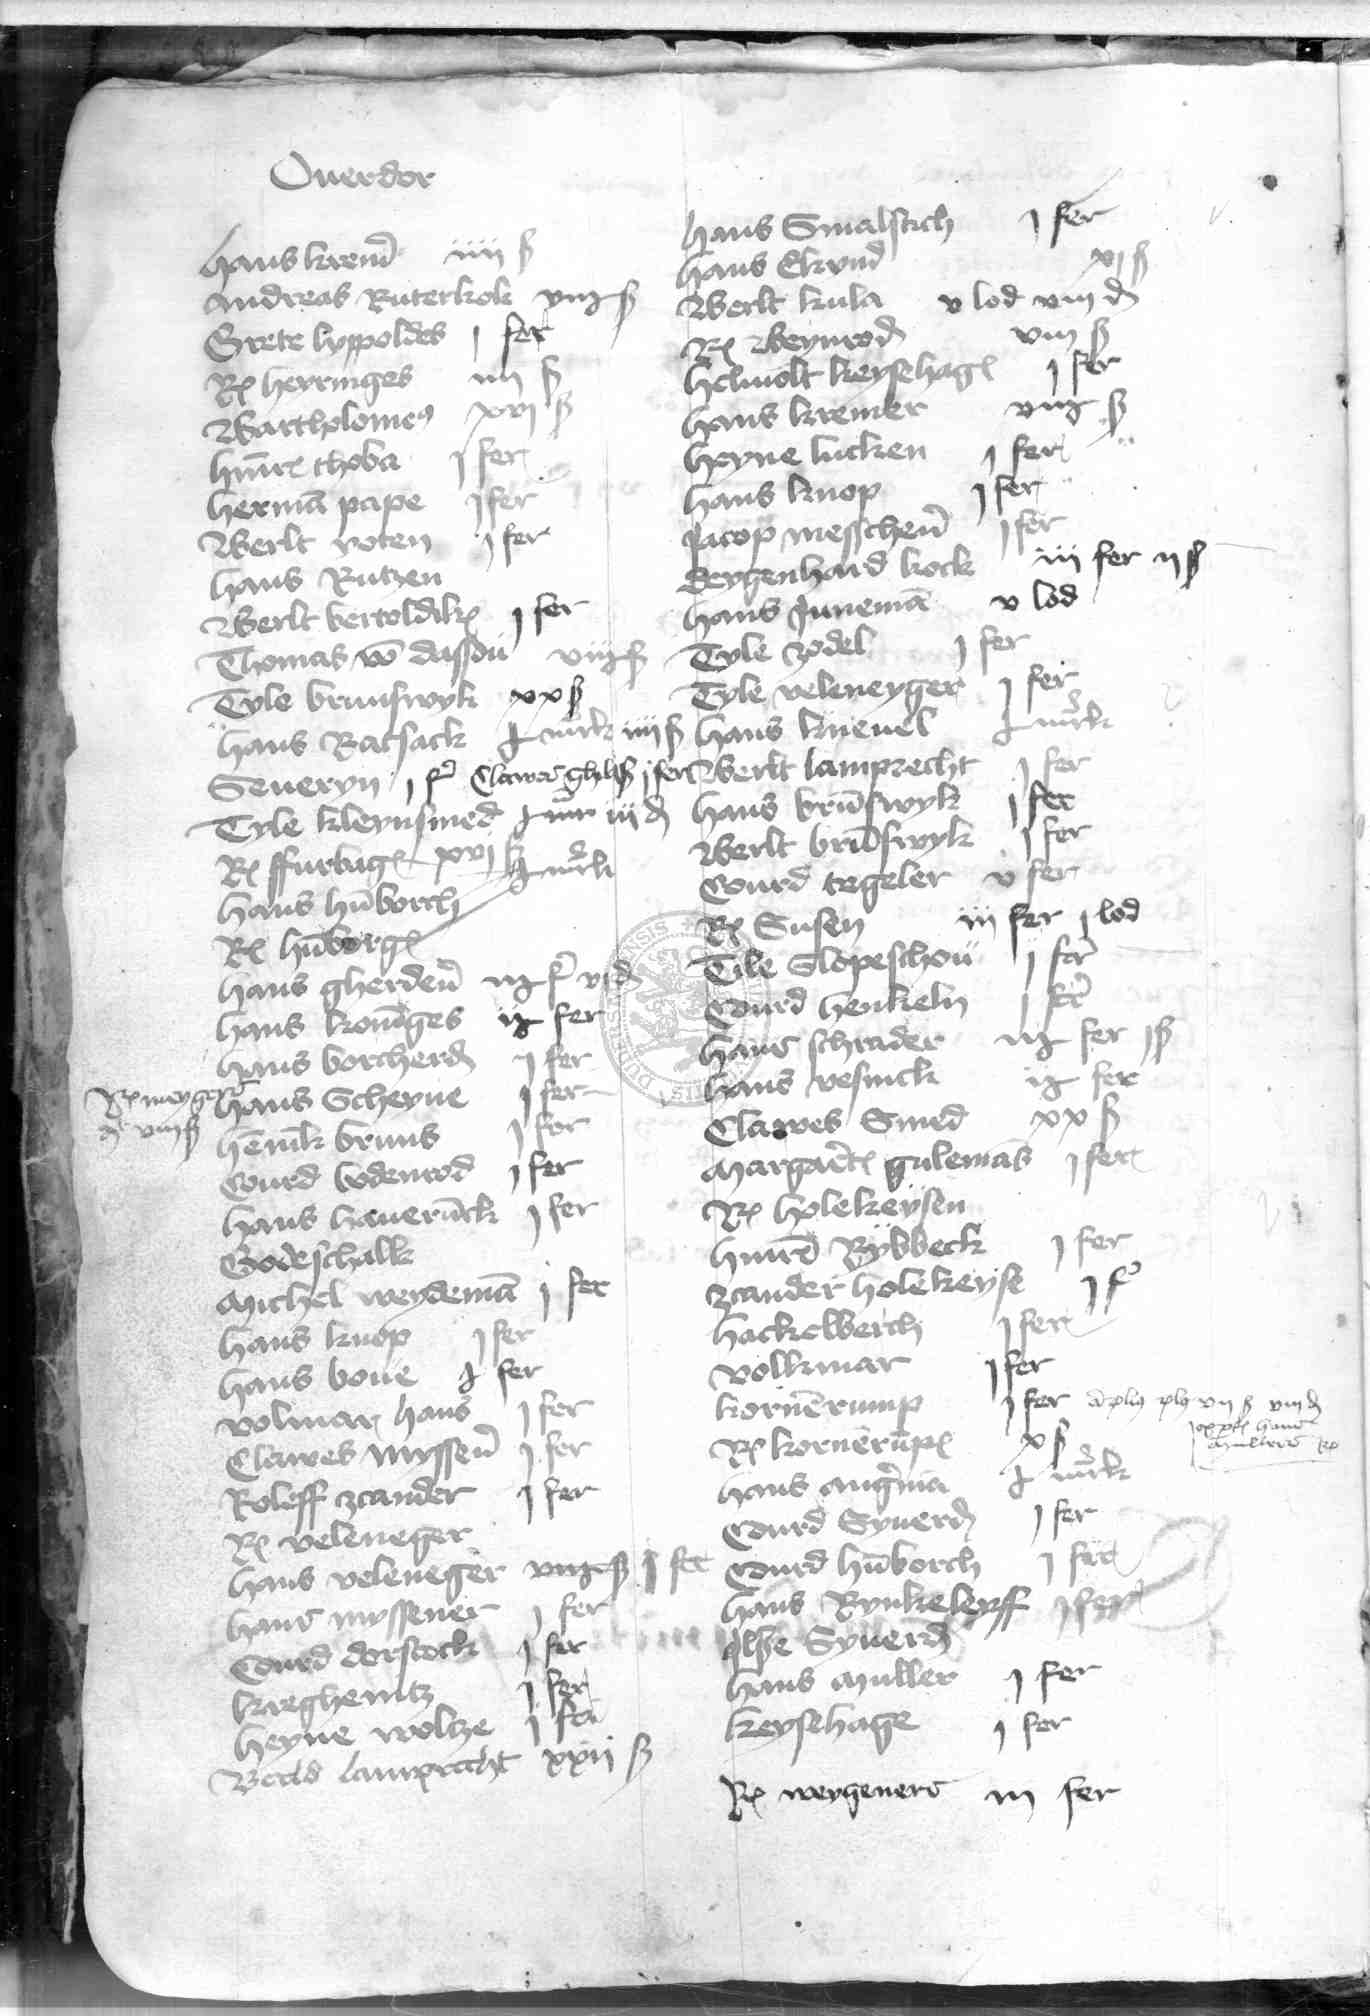 Ouerdor
hans krem̄ iiii ß
Andreas Ruterkok viiɉ ß
Grete lyppoldes j fer
Rͤ heyringes iiii ß
Bartholomeꝰ xvi ß
hinr̄ thoba j fer
hermā pape j fer
Berlt roten j fer
hans Rutzen
Berlt bertoldik j fer
Thomas vō dassou viiɉ ß
Tyle brunswyk xx ß
hans Ratsack ɉ mrk iiii ß
Seueryn j f Clawes j fer
Tyle kleynsmed ɉ mr iii d
R xvj ß
hans hūborch ɉ mrk
R hūborg
hans gherden iiɉ f vi d
hans konīges iɉ fer
hans borcherd j fer
R meyger
viii ß
hans Scheyne j fer
henrik bruns j fer
Courd bodenrod j fer
hans hauerūck j fer
Godeschalk
Michel weydemā j fer
hans knop j fer
hans boue ɉ fer
volmar hans j fer
Clawes myssen̄ j fer
Roleff zcander j fer
R veleneger
hans veleneger viiɉ ß j fer
hans myssener j fer
Courd dorstock j fer
kreghenitz j fer
heyne woltze j fer
Berld lamprecht xxii ß
hans Smalstich j fer
hans xj ß
Berlt kula v lod viii d
R Beynrod viii ß
helmolt keysehag j fer
hans kremer viiɉ ß
heyne lucken j fer
hans knop j fer
Jacop messchen̄ j fer
Seygenhard kock iiii fer ii ß
hans Junemā v lod
Tyle zodel j fer
Tyle veleneyger j fer
hans knenel ɉ mrk
Berlt lamprecht j fer
hans brūswyk j fer
Berlt brūswyk j fer
Courd tegeler v fer
R Susen iii fer j lod
Tile Slopeschou j fer
Courd henkeln j fer
hans schrader iiɉ fer j ß
hans vesinck iɉ fer
Clawes Smed xx ß
Margaret gulemās j fer
R holekeysen
hinrē Rybbeck j fer
zcander holekeyse j f
hackelberch j fer
volkmar j fer
kornērump j fer vii ß viii d
hans
mullers R
R kornerūpe x ß
hans angermā ɉ mrk
Courd Syuerd j fer
Courd hūborch j fer
hans Rynkeleyff j fer
Ilse Syuerd
hans Muller j fer
keysehage j fer
R weygeners iii fer